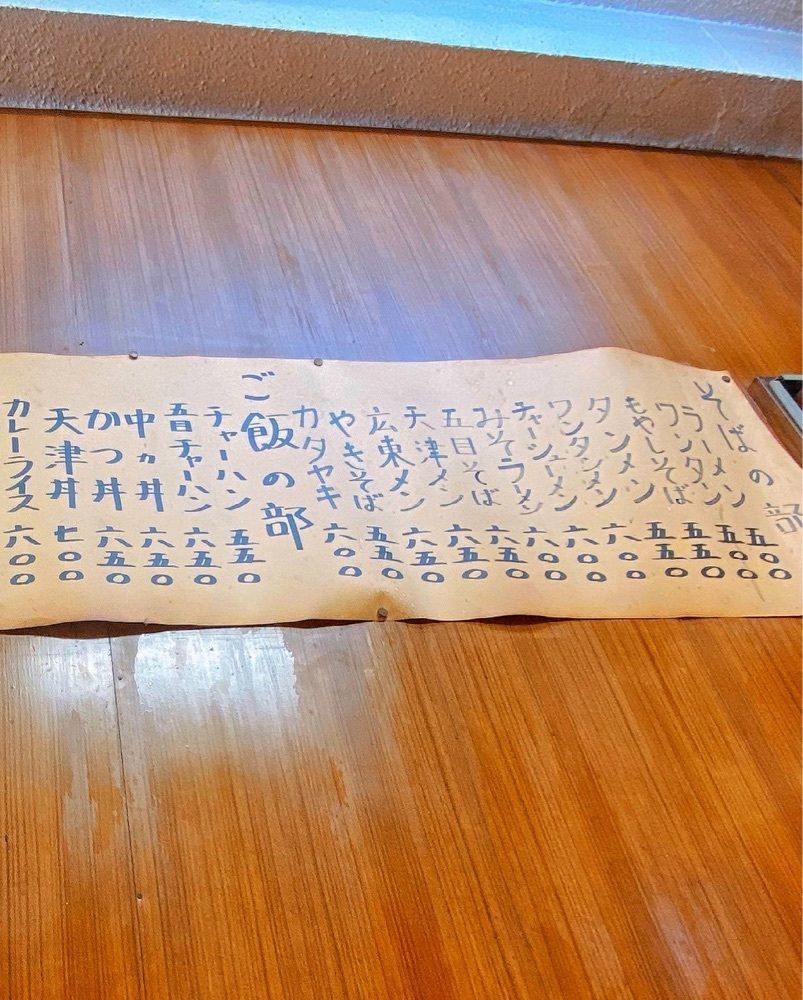 そばの部
ラーメン 五〇〇
ワンタン 五〇〇
もやしそば 五五〇
タンメン 五五〇
ワンタンメン 六〇〇
チャーシューメン 六〇〇
みそラーメン 六〇〇
五目そば 六五〇
天津メン 六五〇
広東メン 六五〇
やきそば 五五〇
カタヤキ 六〇〇
ご飯の部
チャーハン 五五〇
五目チャーハン 六五〇
中カ丼 六五〇
かつ丼 六五〇
天津丼 七〇〇
カレーライス 六〇〇